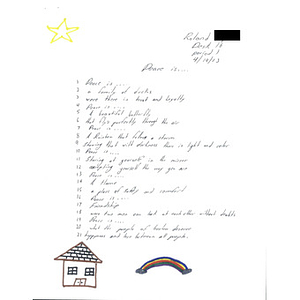 Roland
Desk 16
period 1
9/10/03
Peace is....
1 Peace is....
2 a family of doves
3 were there is trust and loyalty
4 Peace is....
5 A beautiful butterfly
6 that flys perfectly through the air
7 Peace is....
8 A Rainbow that follows a storm
9 Sharing that with darkness there is light and color
10 Peace is....
11 Staring at yourself in the mirror
12 accepting yourself the way you are
13 Peace is....
14 A Home
15 a place of safety and comfort
16 Peace is....
17 Friendship
18 were two men can look at each other without doubts
19 Peace is....
20 what the people of
21 happiness and love between all people.